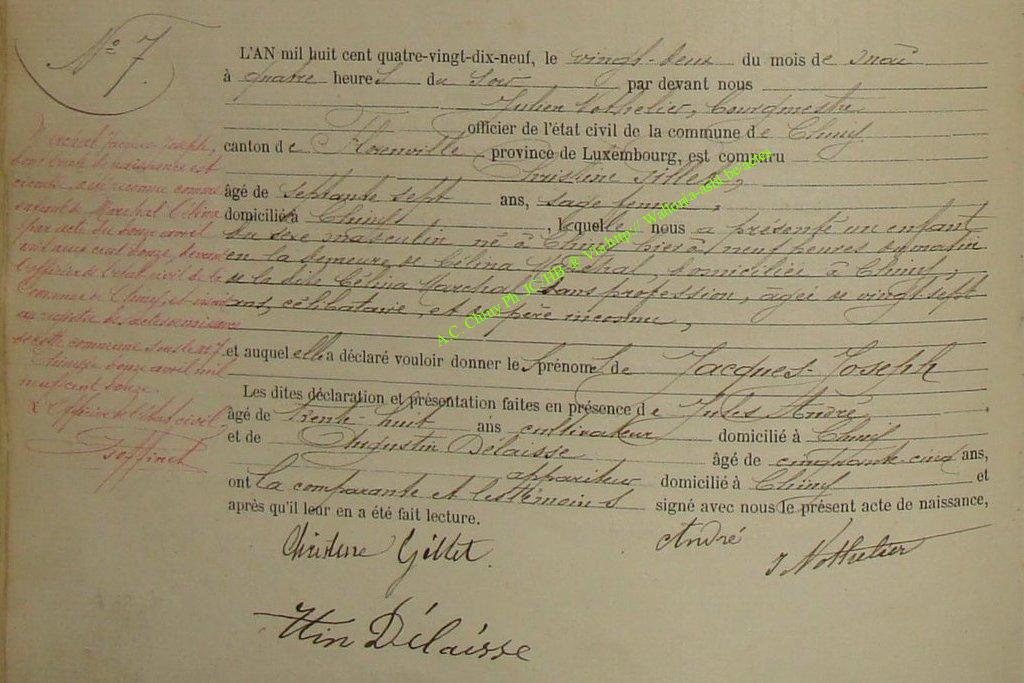 N° 7.
L'AN mil huit cent quatre-vingt-dix-neuf, le vingt-deux du mois de mai
à quatre heures du soir par devant nous
Julien Nothelier, Bourgmestre
officier de l'état civil de la commune de Chiny
canton de Florenville province de Luxembourg, est comparu
Christine Gillet,
âgé de septante sept ans, sage femme,
domicilié à Chiny, laquelle nous a présenté un enfant
du sexe masculin né à Chiny hier à neuf heures du matin
en la demeure de Célina Maréchal, domiciliée à Chiny,
de la dite Célina Maréchal sans profession, âgée de vingt sept
ans, célibataire, et de père inconnu,
et auquel elle a déclaré vouloir donner le s prénom s de Jacques-Joseph
Les dites déclaration et présentation faites en présence de Jules André,
âgé de trente-huit ans cultivateur domicilié à Chiny
et de Augustin Délaisse âgé de cinquante-cinq ans,
appariteur domicilié à Chiny et
ont la comparante et les témoins signé avec nous le présent acte de naissance,
après qu'il leur en a été fait lecture.
Christine Gillet. André J Nothelier
Délaisse
Jacques Joseph,
dont l'acte de naissance est
ci-contre, a été reconnu comme
enfant de Maréchal Célina
par acte du douze avril
mil neuf cent douze, devant
l'officier de l'état civil de la
Commune de Chiny, et inscrit
au registre des actes de naissance
de cette commune sous le n° 7.
Chiny le douze avril mil
neuf cent douze.
L'Officier de l'état civil,
A.C. Chiny Ph. JC-HB © Visit http://Wallonia-asbl.be